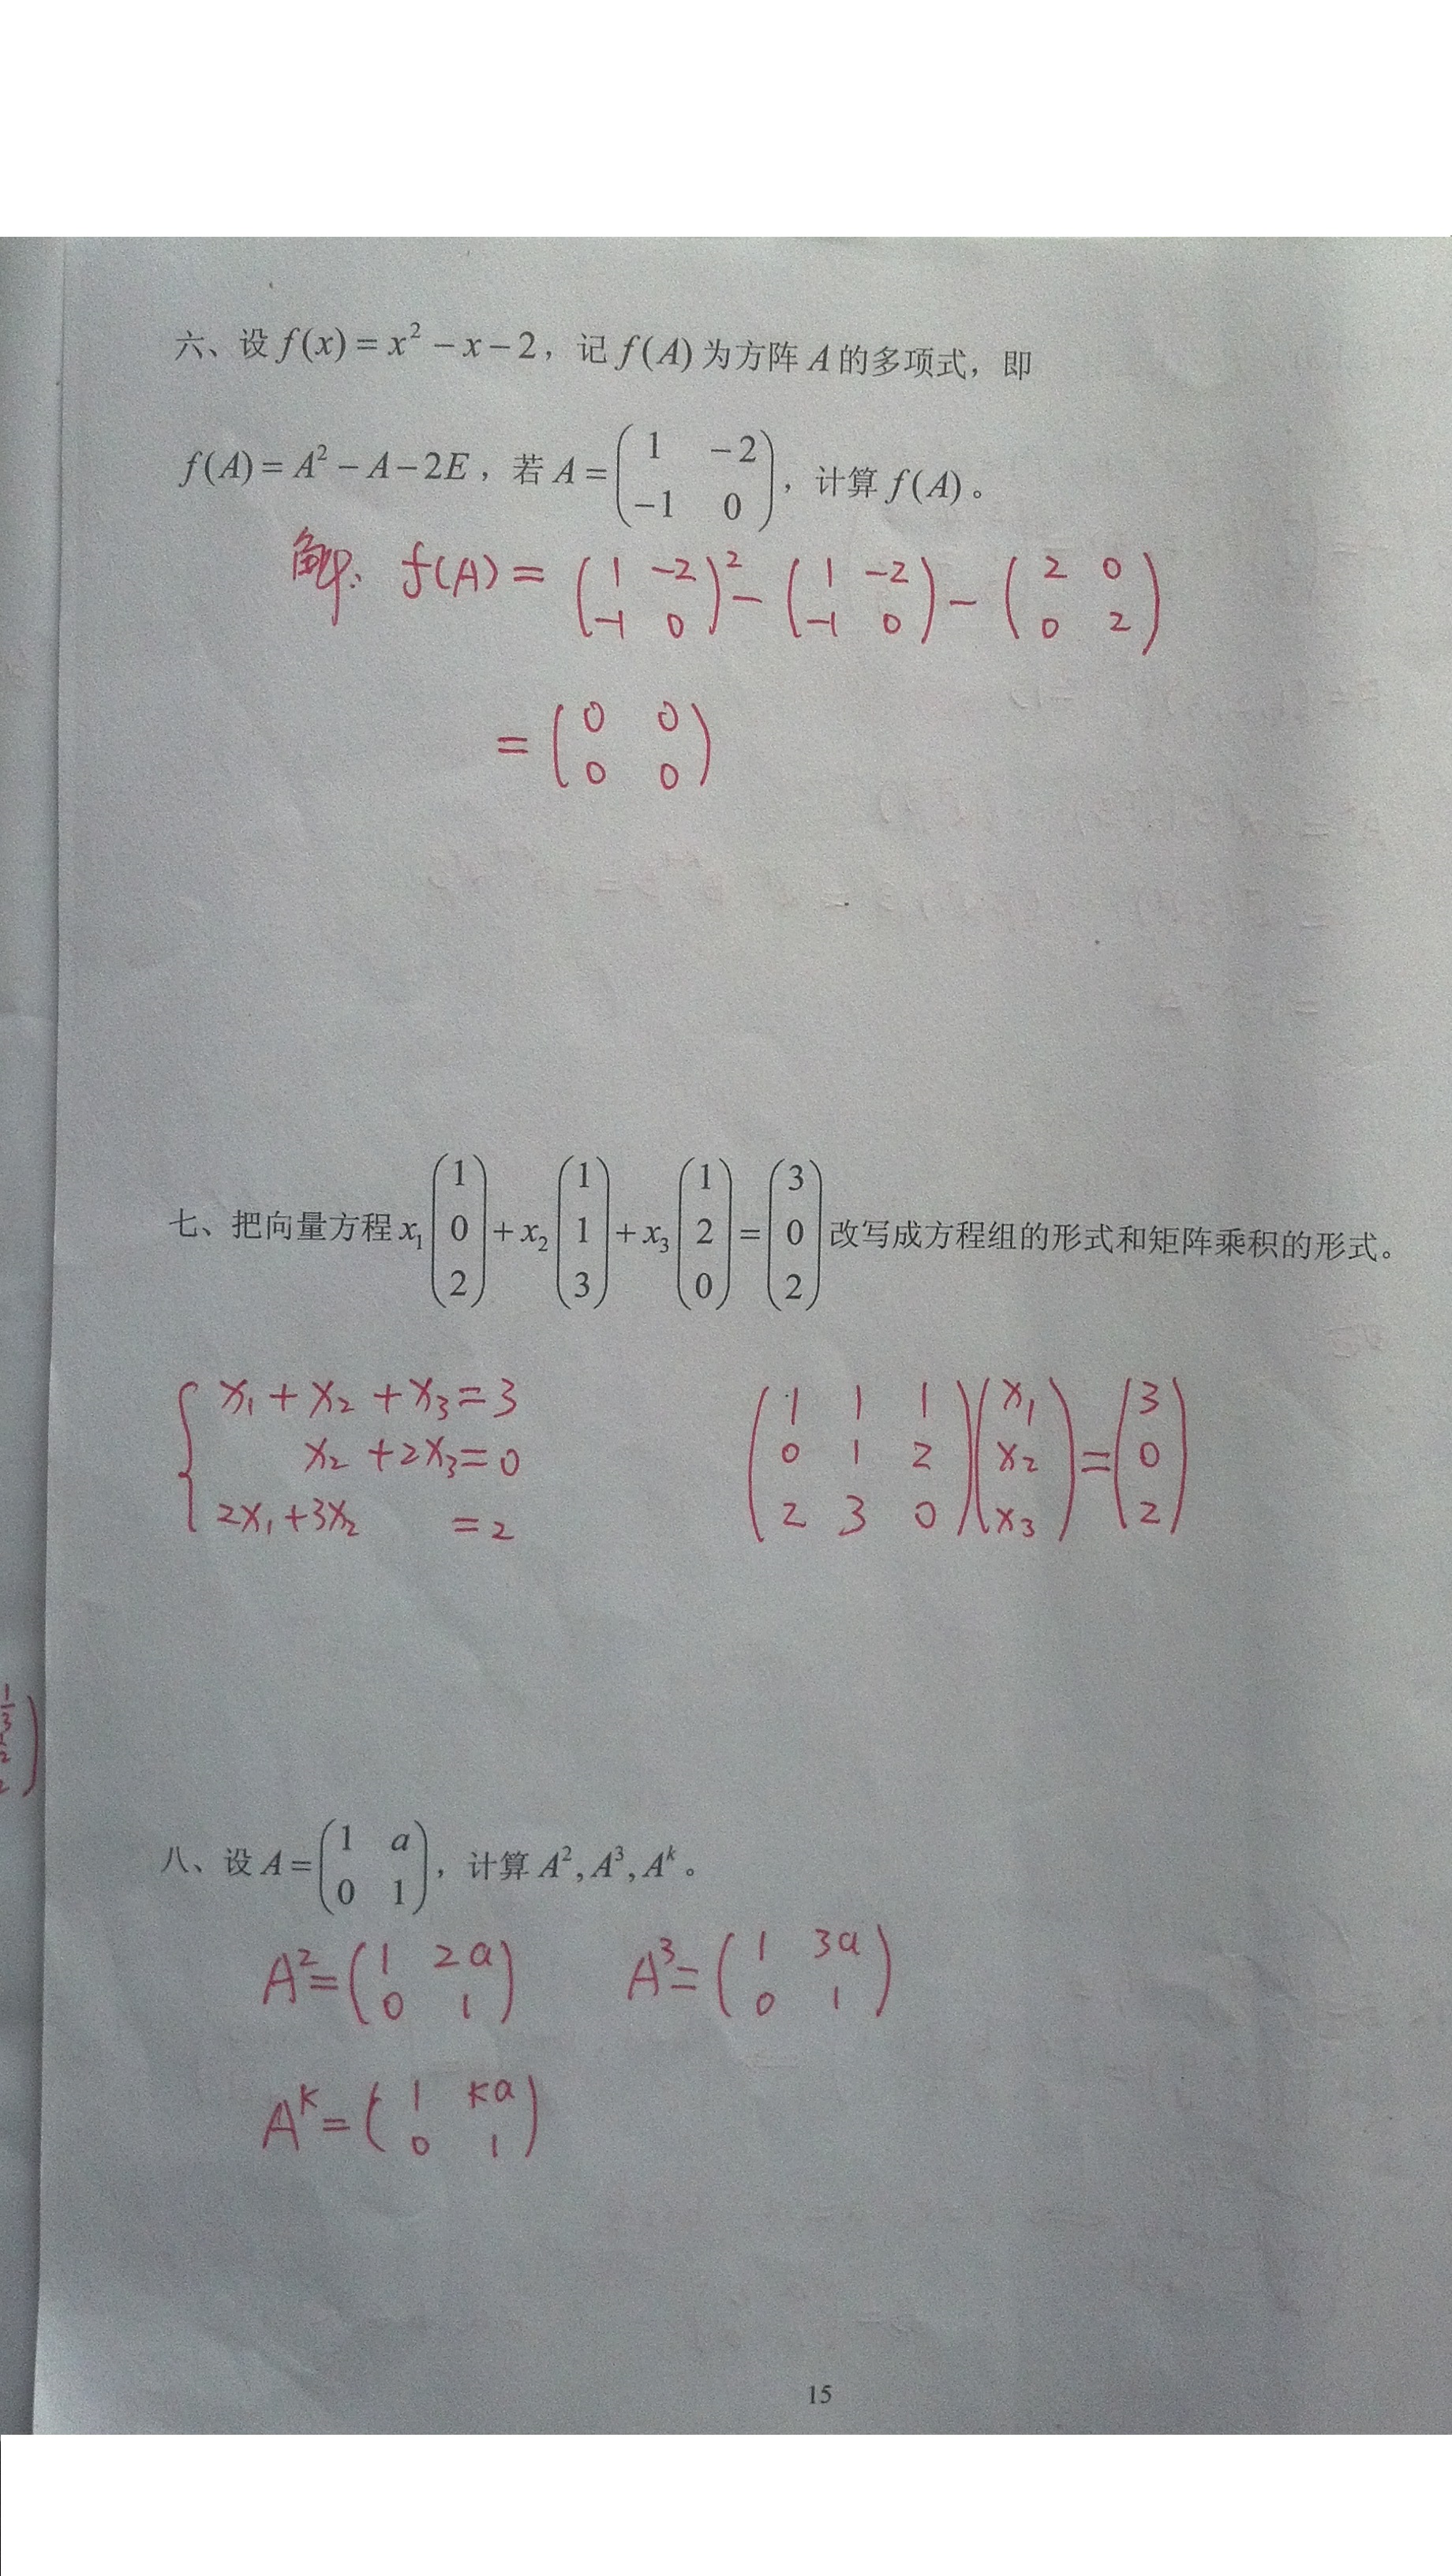 六、设 f(x) = x² − x − 2，记 f(A) 为方阵 A 的多项式，即
f(A) = A² − A − 2E，若 A = (1 −2; −1 0)，计算 f(A)。
解: f(A) = (1 −2; −1 0)² − (1 −2; −1 0) − (2 0; 0 2)
= (0 0; 0 0)
七、把向量方程 x₁(1; 0; 2) + x₂(1; 1; 3) + x₃(1; 2; 0) = (3; 0; 2) 改写成方程组的形式和矩阵乘积的形式。
{ x₁ + x₂ + x₃ = 3
x₂ + 2x₃ = 0
2x₁ + 3x₂ = 2
(1 1 1; 0 1 2; 2 3 0)(x₁; x₂; x₃) = (3; 0; 2)
八、设 A = (1 a; 0 1)，计算 A², A³, Aᵏ。
A² = (1 2a; 0 1) A³ = (1 3a; 0 1)
Aᵏ = (1 ka; 0 1)
15